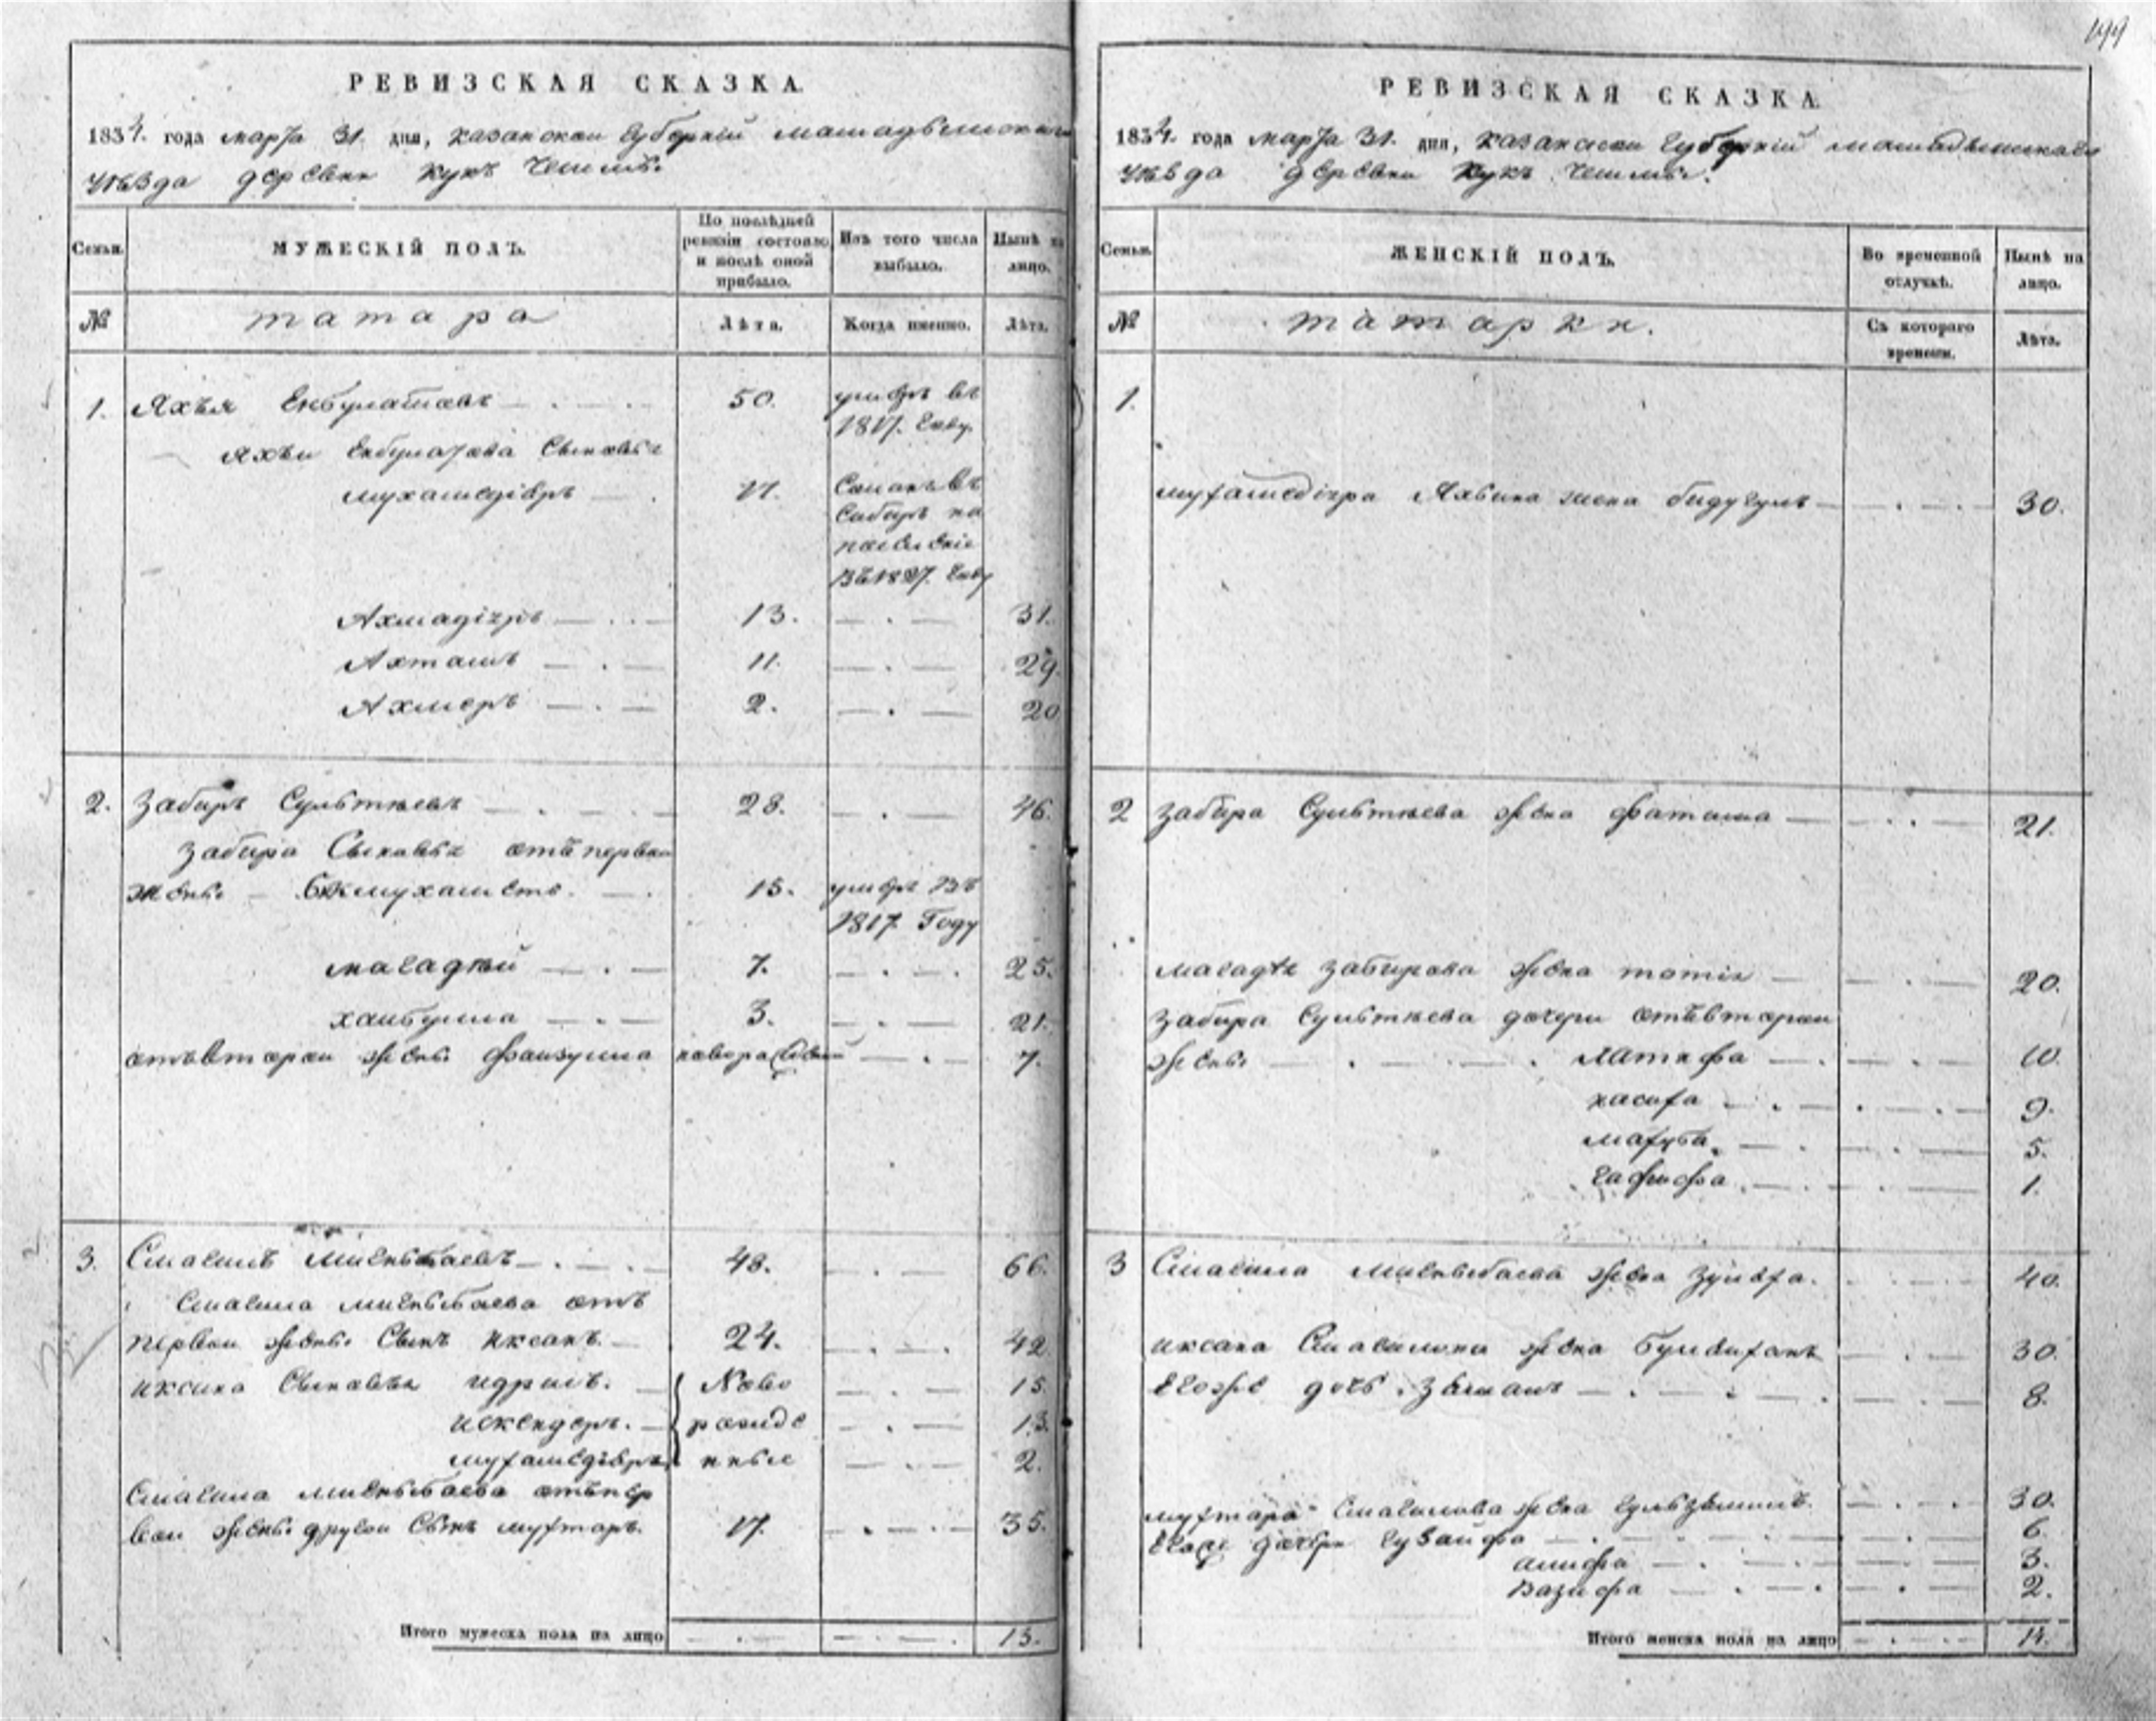 199
РЕВИЗСКАЯ СКАЗКА
1834. года марта 31. дня, казанской губерній мамадышскаго
уѣзда деревни Кукъ Чешмы.
Семьи. МУЖЕСКІЙ ПОЛЪ. По послѣдней ревизіи состояло и послѣ оной прибыло. Изъ того числа выбыло. Нынѣ на лицо.
№ татара Лѣта. Когда именно. Лѣта.
1. Яхъя Екбулатовъ 50. умѣръ въ
1817. году
Яхъи Екбулатова Сыновья
мухамедіяръ 17. Сосланъ въ
Сибирь на
поселеніе
въ 1827. году
Ахмадіяръ 13. 31.
Ахташъ 11. 29.
Ахмеръ 2. 20
2. Забиръ Сультѣевъ 28. 46.
Забира Сыновья отъ первой
жены Бикмухаметь. 15. умѣръ въ
1817. Году
магадѣй 7. 25.
хайбулла 3. 21.
отъ второй жены Файзулла новорожденный 7.
3. Смагилъ Мигнбаевъ 48. 66.
Смагила Мигнбаева отъ
первой жены Сынъ иксанъ. 24. 42
иксана Сыновья идрисъ. Ново 15.
искендеръ. рожде 13.
мухамедіяръ нные 2.
Смагила Мигнбаева отъ пер
вой жены другой Сынъ мухтаръ. 17. 35.
Итого мужеска пола на лицо 13.
РЕВИЗСКАЯ СКАЗКА
1834. года марта 31. дня, казанской губерній мамадышскаго
уѣзда деревни Кукъ Чешмы.
Семьи. ЖЕНСКІЙ ПОЛЪ. Во временной отлучкѣ. Нынѣ на лицо.
№ татарки. Съ котораго времени. Лѣта.
1.
мухамедіяра Яхьина жена бидугулъ 30.
2 забира Сультѣева жена фатима 21.
магадѣя забирова жена 20.
забира Сультѣева дочери отъ второй
жены латифа 10.
хасифа 9.
махуба 5.
гафифа 1.
3 Смагила Мигнбаева жена зулѣфа. 40.
иксана Смагилова жена 30.
Егоже дочь 8.
мухтара Смагилова жена 30.
Егоже дочери губайфа 6.
алифа 3.
вазифа 2.
Итого женска пола на лицо 14.